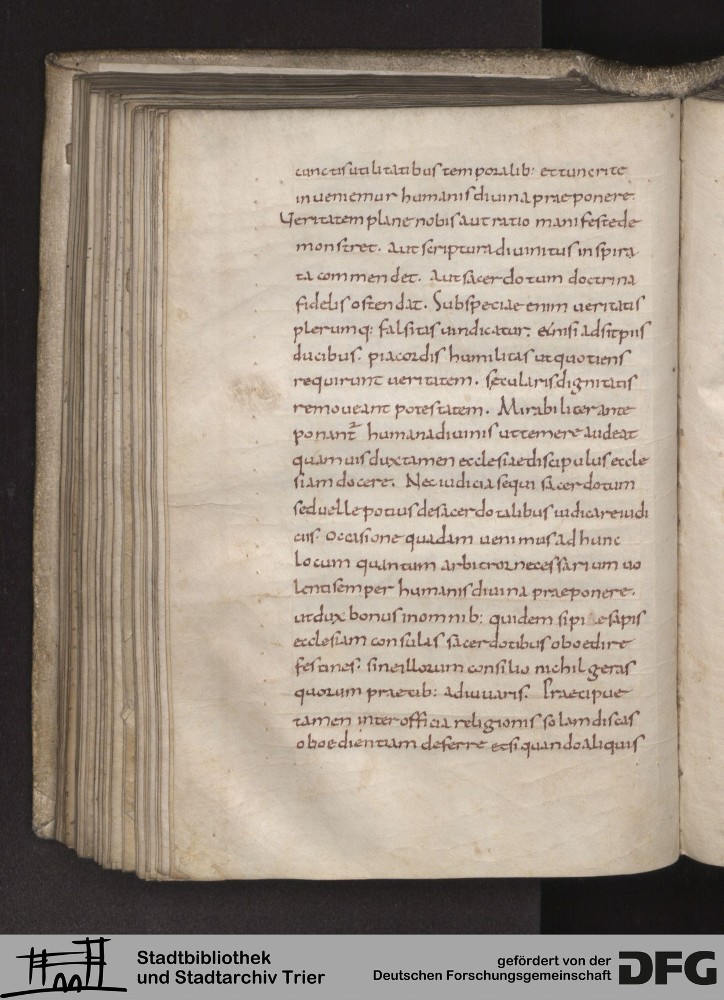 cunctis utilitatibus temporalib: et tunc rite
inveniemur humanis divina praeponere.
Veritatem plane nobis aut ratio manifeste de
monstret. aut scriptura divinitus inspira
ta commendet. aut sacerdotum doctrina
fidelis ostendat. Sub speciae enim veritatis
plerumq: falsitas vindicatur. et nisi adsit piis
ducibus. pia cordis humilitas ut quotiens
requirunt veritatem. secularis dignitatis
removeant potestatem. Mirabiliter ante
ponant humana divinis ut temere audeat
quamvis dux tamen ecclesiae discipulus eccle
siam docere. Nec iudicia sequi sacerdotum
sed velle potius de sacerdotalibus iudicare iudi
ciis. Occasione quadam venimus ad hunc
locum quantum arbitror necessarium vo
lenti semper humanis divina praeponere.
ut dux bonus in omnib: quidem si pie sapis
ecclesiam consulas sacerdotibus oboedire
festines. sine illorum consilio nichil geras
quorum praecib: adiuvaris. Praecipue
tamen inter officia religionis solam discas
oboedientiam deferre et si quando aliquis
Stadtbibliothek
und Stadtarchiv Trier
gefördert von der
Deutschen Forschungsgemeinschaft
DFG